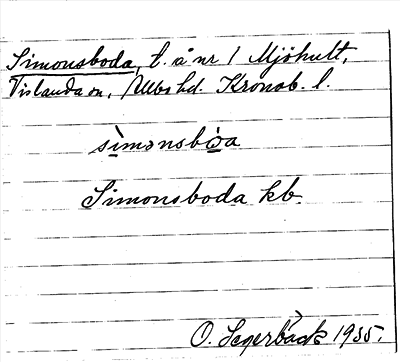 Simonsboda, t. å nr 1 Mjöhult,
Vislanda sn, Allbo hd. Kronob. l.
sìmonsbωa
Simonsboda kb.
O. Segerbäck 1935.